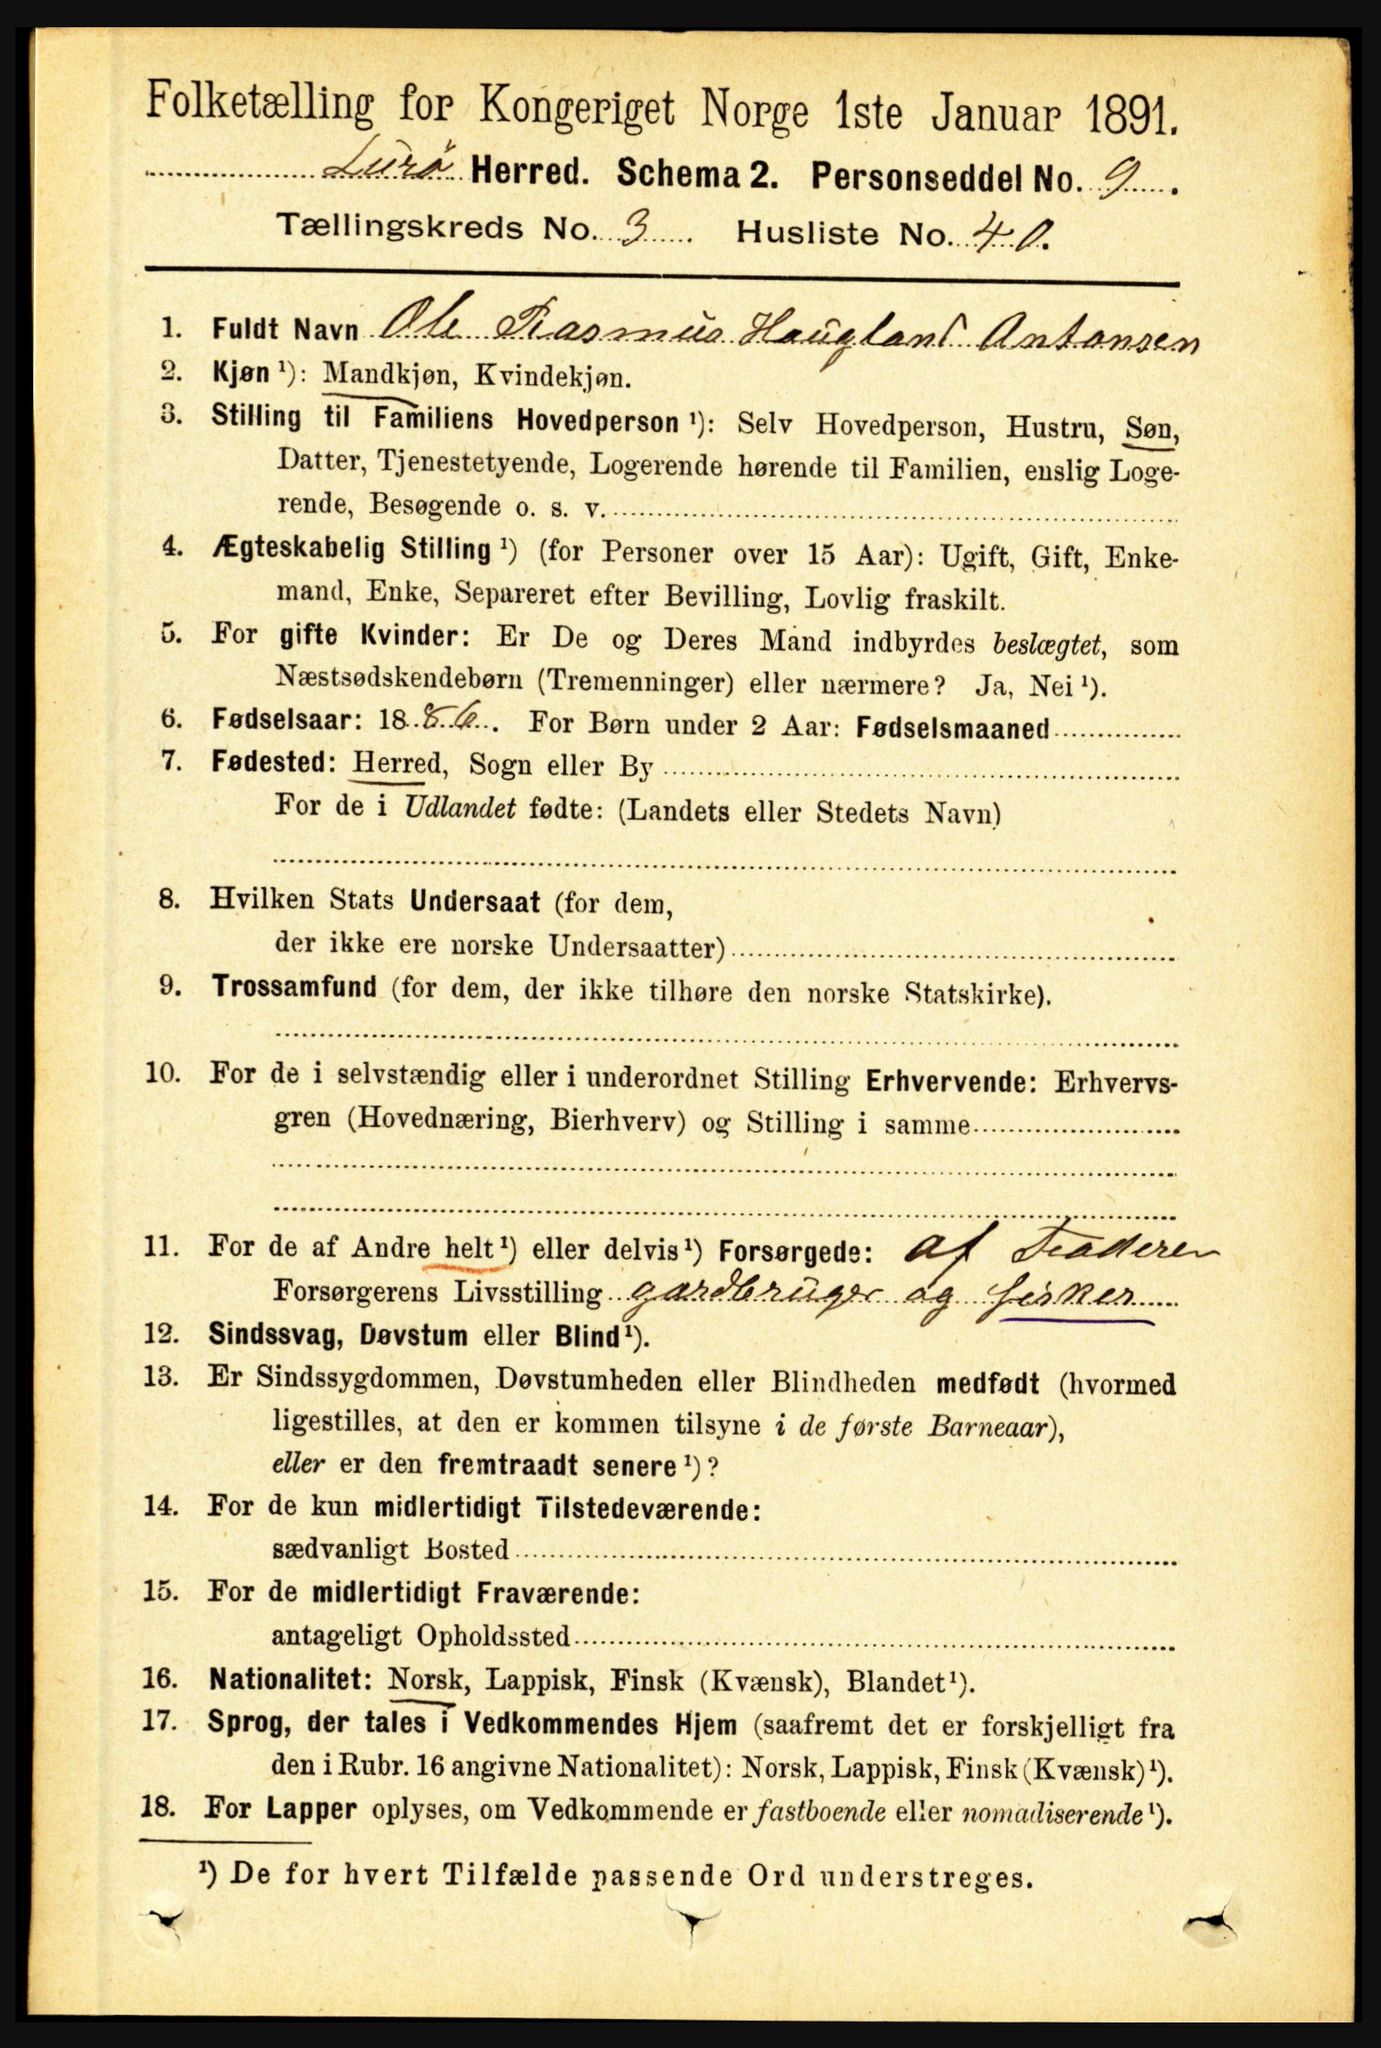 Folketælling for Kongeriget Norge 1ste Januar 1891.
Lurö Herred. Schema 2. Personseddel No. 9.
Tællingskreds No. 3. Husliste No. 40.
1. Fuldt Navn Ole Rasmus Haugland Antonsen
2. Kjøn ¹): Mandkjøn, Kvindekjøn.
3. Stilling til Familiens Hovedperson ¹): Selv Hovedperson, Hustru, Søn,
Datter, Tjenestetyende, Logerende hørende til Familien, enslig Loge-
rende, Besøgende o. s. v.
4. Ægteskabelig Stilling ¹) (for Personer over 15 Aar): Ugift, Gift, Enke-
mand, Enke, Separeret efter Bevilling, Lovlig fraskilt.
5. For gifte Kvinder: Er De og Deres Mand indbyrdes beslægtet, som
Næstsødskendebørn (Tremenninger) eller nærmere? Ja, Nei ¹).
6. Fødselsaar: 1886. For Børn under 2 Aar: Fødselsmaaned
7. Fødested: Herred, Sogn eller By
For de i Udlandet fødte: (Landets eller Stedets Navn)
8. Hvilken Stats Undersaat (for dem,
der ikke ere norske Undersaatter)
9. Trossamfund (for dem, der ikke tilhøre den norske Statskirke).
10. For de i selvstændig eller i underordnet Stilling Erhvervende: Erhvervs-
gren (Hovednæring, Bierhverv) og Stilling i samme
11. For de af Andre helt ¹) eller delvis ¹) Forsørgede: af Faderen
Forsørgerens Livsstilling gardbruger og fisker
12. Sindssvag, Døvstum eller Blind ¹).
13. Er Sindssygdommen, Døvstumheden eller Blindheden medfødt (hvormed
ligestilles, at den er kommen tilsyne i de første Barneaar),
eller er den fremtraadt senere ¹)?
14. For de kun midlertidigt Tilstedeværende:
sædvanligt Bosted
15. For de midlertidigt Fraværende:
antageligt Opholdssted
16. Nationalitet: Norsk, Lappisk, Finsk (Kvænsk), Blandet ¹).
17. Sprog, der tales i Vedkommendes Hjem (saafremt det er forskjelligt fra
den i Rubr. 16 angivne Nationalitet): Norsk, Lappisk, Finsk (Kvænsk) ¹).
18. For Lapper oplyses, om Vedkommende er fastboende eller nomadiserende ¹).
¹) De for hvert Tilfælde passende Ord understreges.